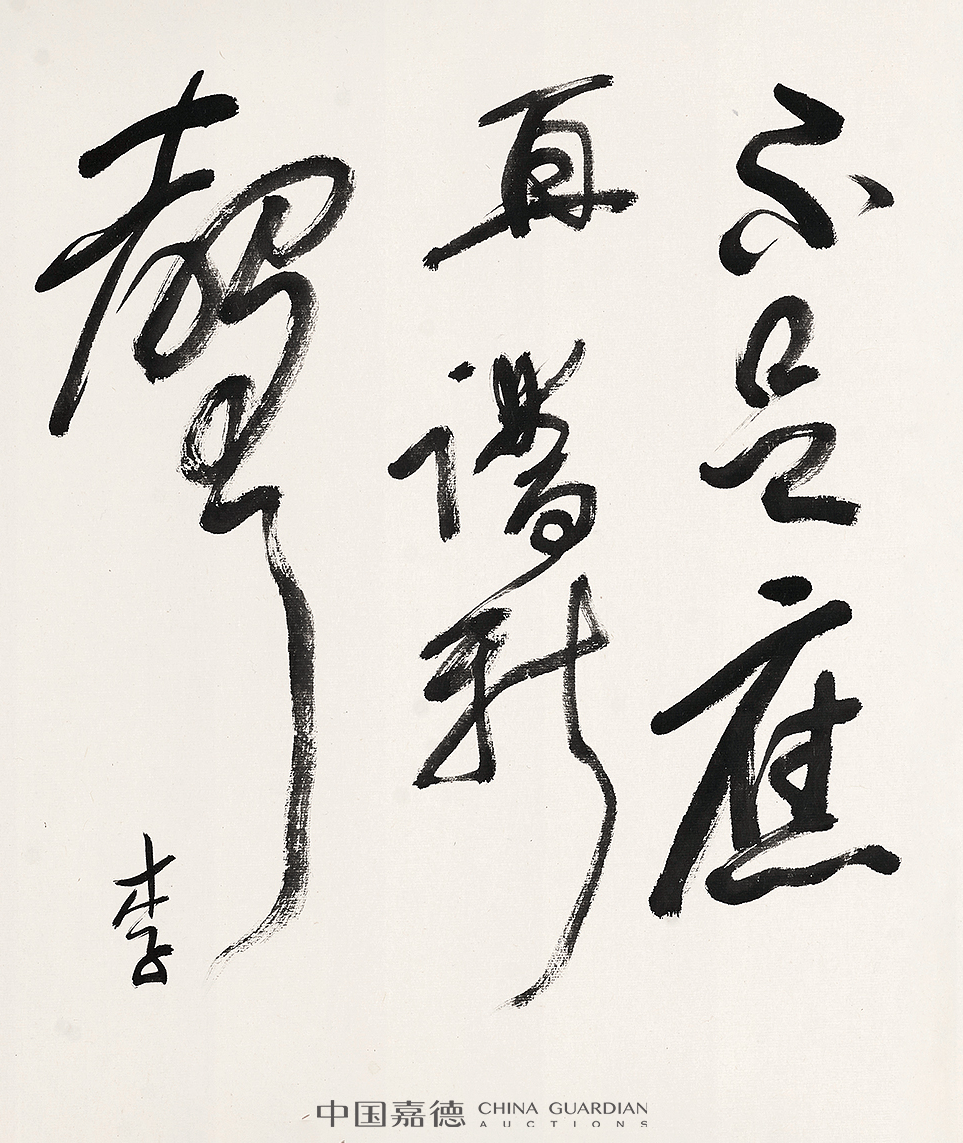 不是應
再譜新
聲
李
中国嘉德 CHINA GUARDIAN
AUCTIONS